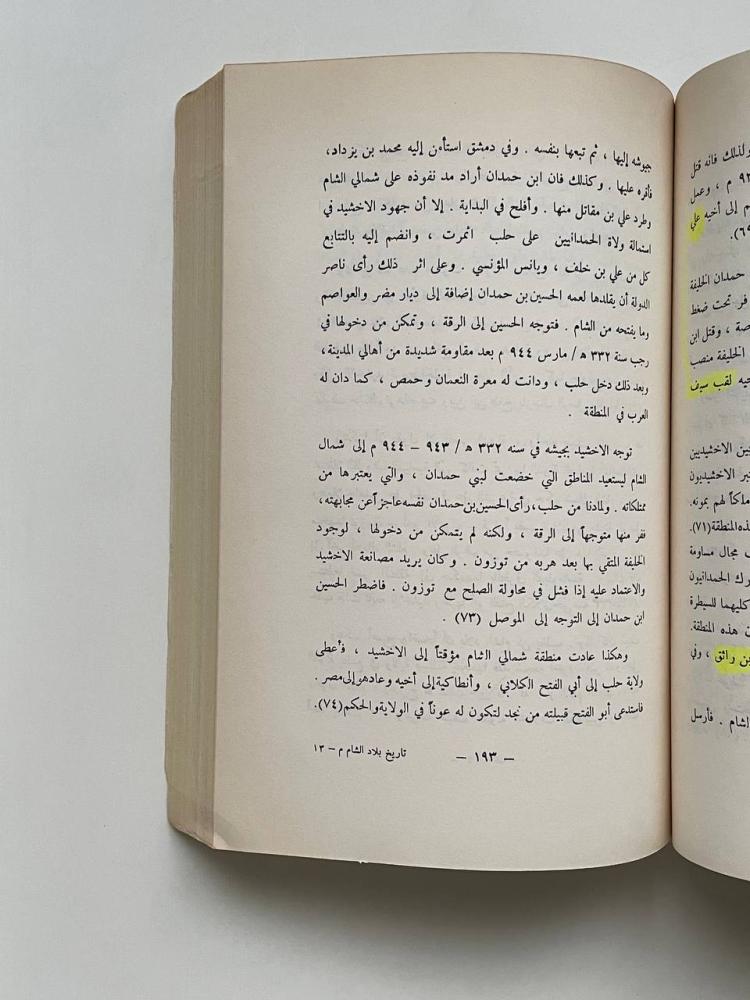 ولذلك فانه قتل
م ، وعمل
م إلى أخيه علي
حمدان الخليفة
فر تحت ضغط
وقتل ابن
الخليفة منصب
لقب سيف
الاخشيديين
الاخشيديون
لهم بمونه.
المنطقة (٧١).
مجال مساومة
الحمدانيون
كليهما للسيطرة
هذه المنطقة.
بن رائق ، وفي
الشام . فأرسل
جيوشه إليها ، ثم تبعها بنفسه . وفي دمشق استأمن إليه محمد بن يزداد،
فأقره عليها . وكذلك فان ابن حمدان أراد مد نفوذه على شمالي الشام
وطرد علي بن مقاتل منها . وأفلح في البداية . إلا أن جهود الاخشيد في
استمالة ولاة الحمدانيين على حلب اثمرت ، وانضم إليه بالتتابع
كل من علي بن خلف ، ويانس المؤنسي . وعلى اثر ذلك رأى ناصر
الدولة أن يقلدها لعمه الحسين بن حمدان إضافة إلى ديار مضر والعواصم
وما يفتحه من الشام . فتوجه الحسين إلى الرقة ، وتمكن من دخولها في
رجب سنة ٣٣٢ ه / مارس ٩٤٤ م بعد مقاومة شديدة من أهالي المدينة،
وبعد ذلك دخل حلب ، ودانت له معرة النعمان وحمص ، كما دان له
العرب في المنطقة .
توجه الاخشيد بجيشه في سنه ٣٣٢ ه / ٩٤٣ – ٩٤٤ م إلى شمال
الشام ليستعيد المناطق التي خضعت لبني حمدان ، والتي يعتبرها من
ممتلكاته . ولمادنا من حلب، رأى الحسين بن حمدان نفسه عاجزاً عن مجابهته،
ففر منها متوجهاً إلى الرقة ، ولكنه لم يتمكن من دخولها ، لوجود
الخليفة المتقي بها بعد هربه من توزون . وكان يريد مصانعة الاخشيد
والاعتماد عليه إذا فشل في محاولة الصلح مع توزون . فاضطر الحسين
ابن حمدان إلى التوجه إلى الموصل (٧٣) .
وهكذا عادت منطقة شمالي الشام مؤقتاً إلى الاخشيد ، فأعطى
ولاية حلب إلى أبي الفتح الكلابي ، وأنطاكية إلى أخيه وعاد هو إلى مصر .
فاستدعى أبو الفتح قبيلته من نجد لتكون له عوناً في الولاية والحكم (٧٤).
– ١٩٣ –
تاريخ بلاد الشام م – ١٣